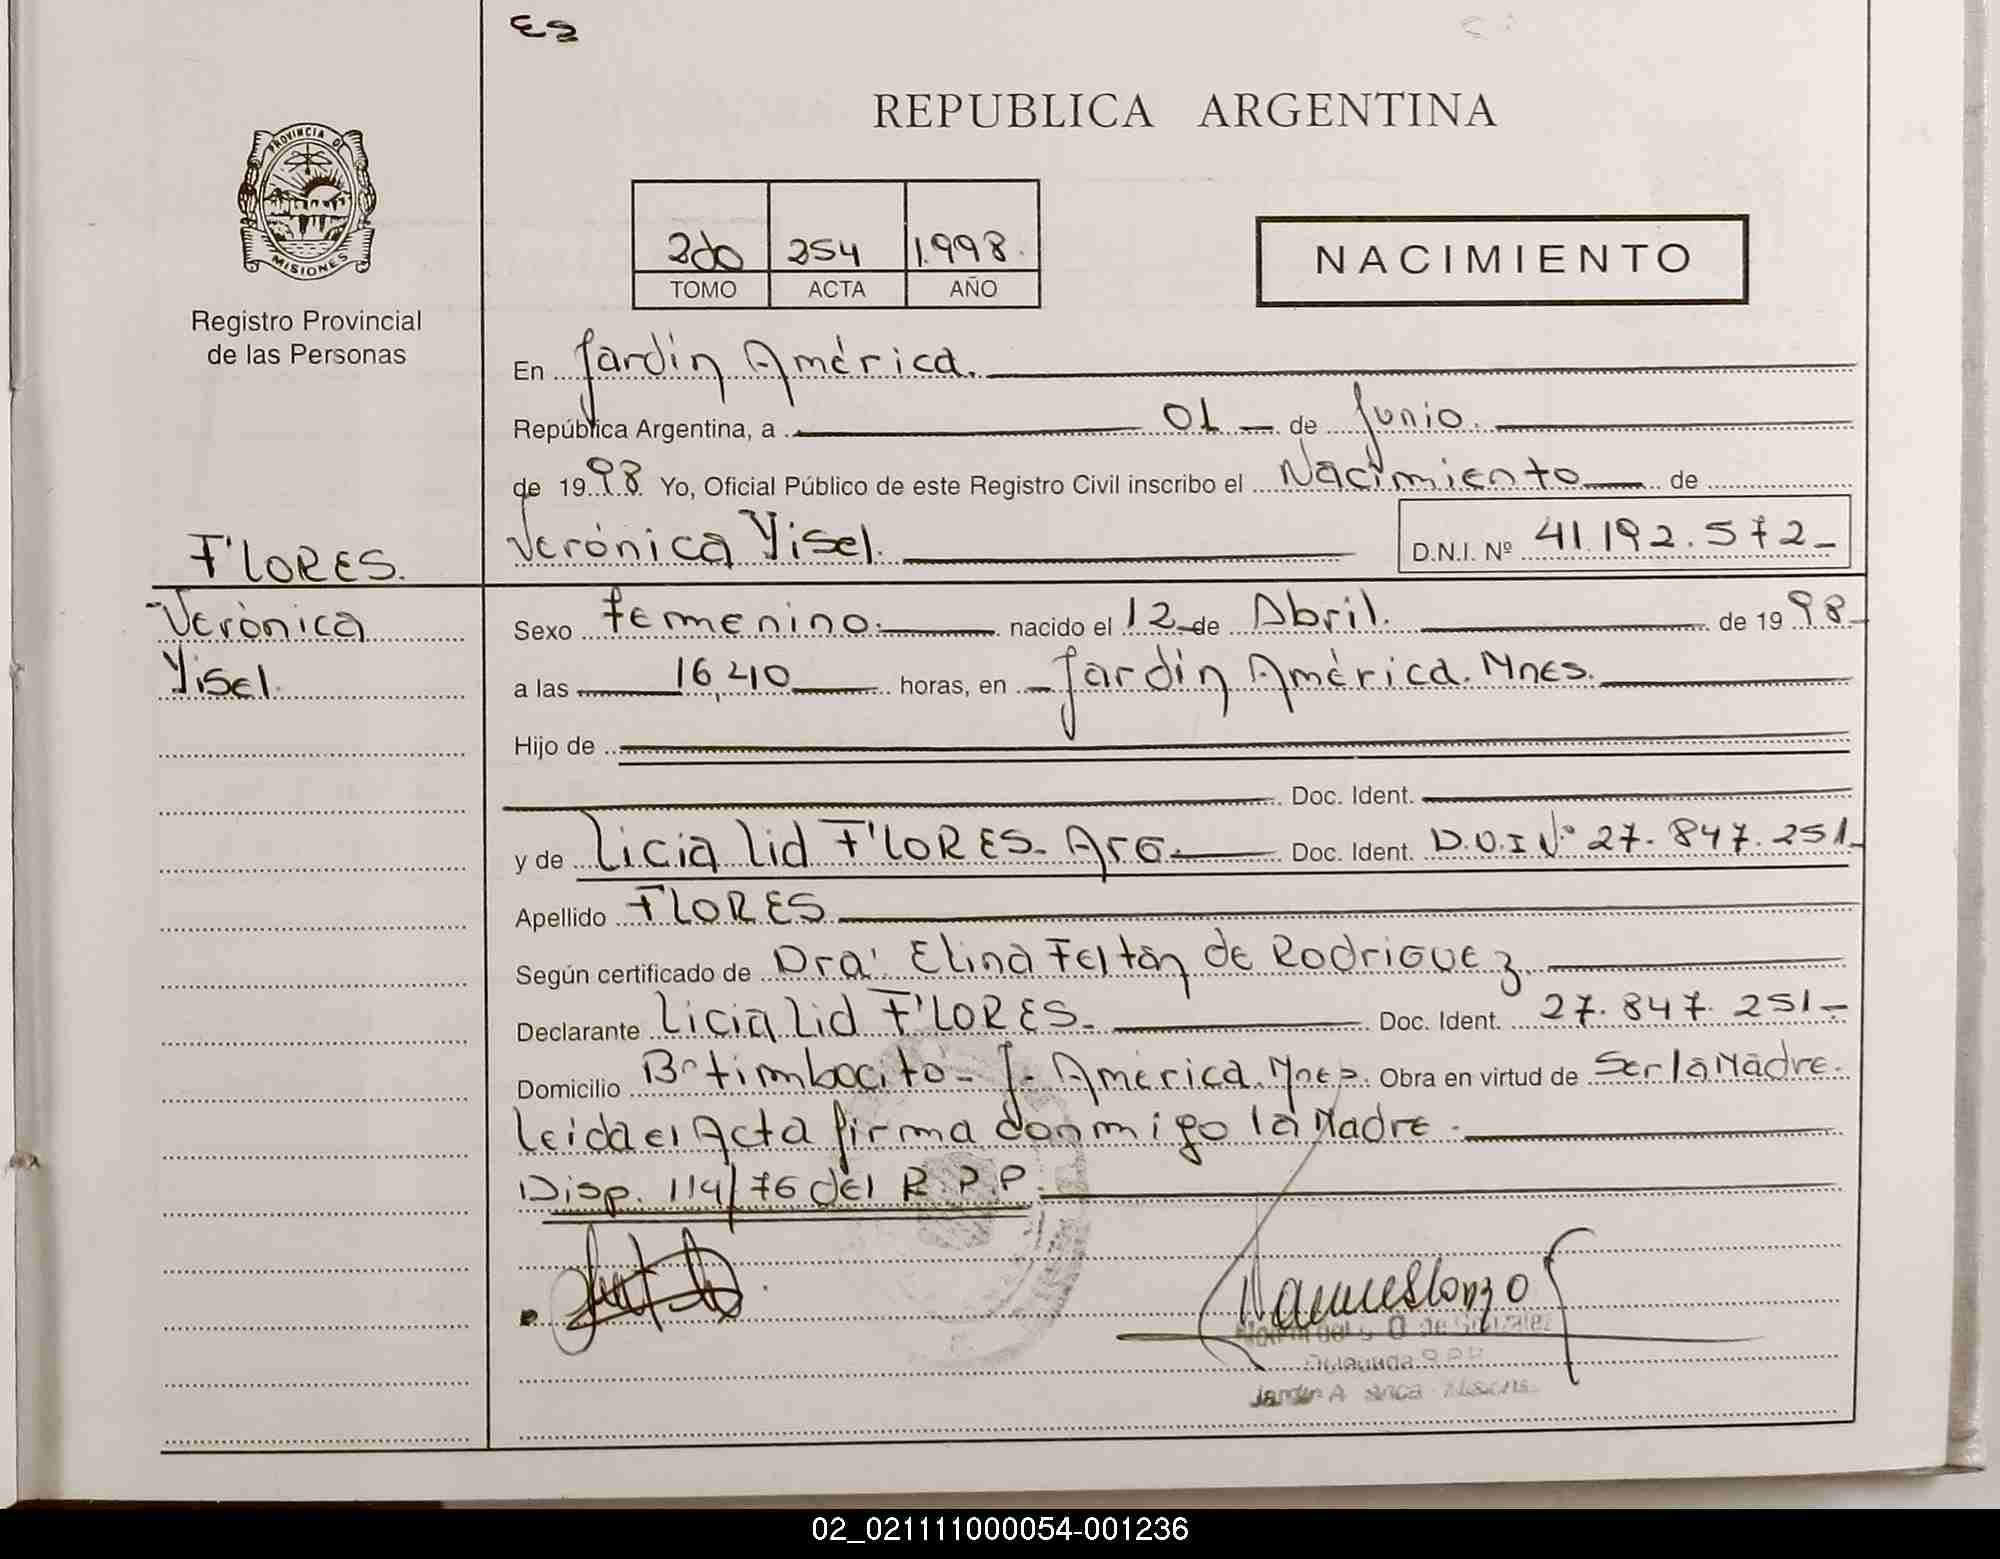 REPUBLICA ARGENTINA
PROVINCIA DE
MISIONES
Registro Provincial
de las Personas
2do 254 1.998.
TOMO ACTA AÑO
NACIMIENTO
En Jardín América.
República Argentina, a 01 de Junio.
de 1998 Yo, Oficial Público de este Registro Civil inscribo el Nacimiento de
Verónica Yisel. D.N.I. Nº 41.192.572
FLORES.
Verónica
Yisel.
Sexo femenino. nacido el 12 de Abril. de 1998
a las 16,40 horas, en Jardín América. Mnes.
Hijo de
Doc. Ident.
y de Licia Lid FLORES. Arg. Doc. Ident. D.N.I Nº 27.847.251
Apellido FLORES
Según certificado de Dra. Elina Feltan de Rodriguez
Declarante Licia Lid FLORES. Doc. Ident. 27.847.251
Domicilio Bº timbocito - J. América. Mnes. Obra en virtud de Ser la Madre.
Leida el Acta firma conmigo la Madre.
Disp. 114/76 del R.P.P.
02_021111000054-001236